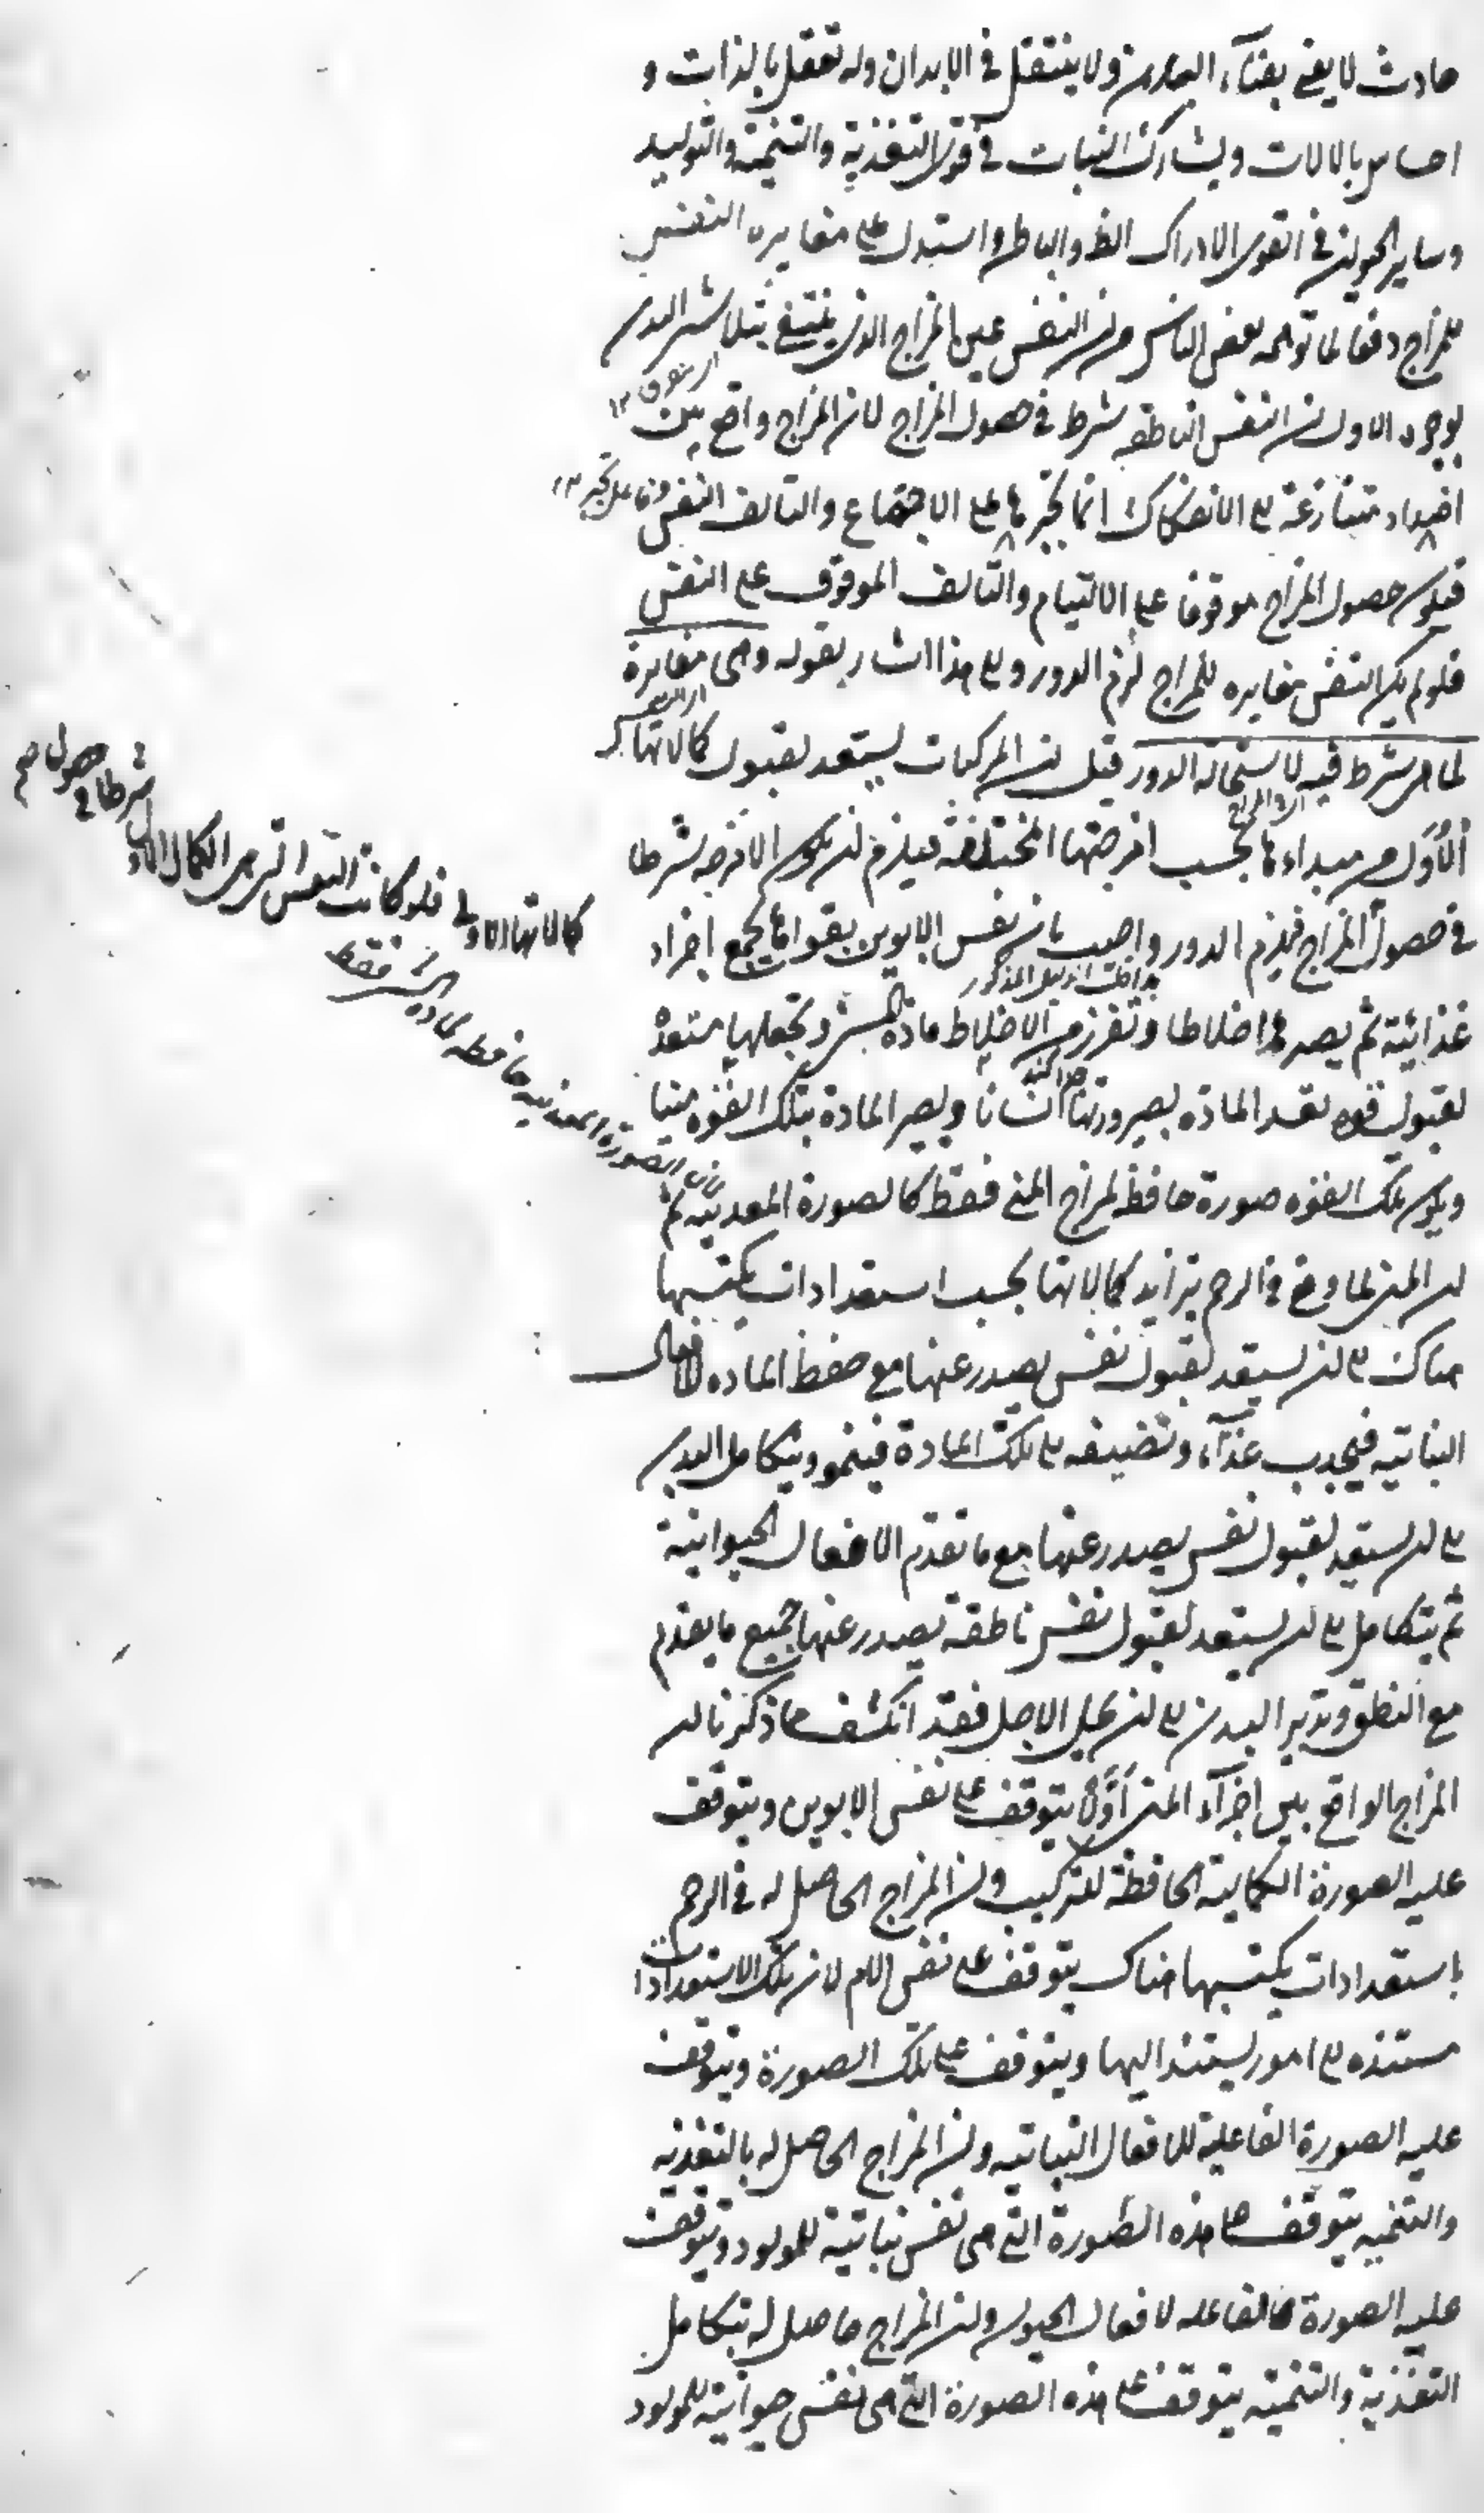 حادث لا يفنى بفنآء البدن ولا ينتقل في الابدان وله تعقل بالذات و
احساس بالالات ويشارك النبات في قوى التغذية والتنمية والتوليد
وساير الحيوان في القوى الادراك الظ والباطن واستدل على مغايره النفس
للمزاج دفعا لما توهمه بعض الناس من ان النفس عين المزاج الذى ينتفى بتلاشى البدن
بوجوه الاول ان النفس الناطقه شرط في حصول المزاج لان المزاج واقع بين
اضداد متنازعة الى الانفكاك انما يجبرها على الاجتماع والتالف النفس
فيكون حصول المزاج موقوفا على الالتيام والتالف الموقوف على النفس
فلو لم يكن النفس مغايره للمزاج لزم الدور والى هذا اشار بقوله وهى مغايرة
لما هى شرط فيه لاستحالة الدور قيل ان المركبات يستعد لقبول كمالاتها
الأوَل من مبداءها بحسب امزجتها المختلفة فيلزم ان يكون الامزجه شرطا
في حصول المزاج فيلزم الدور واجيب بان نفس الابوين بقواها يجمع اجزاء
غذائية ثم يصيرها اخلاطا وتفرز من الاخلاط مادة المنى وتجعلها مستعدة
لقبول قوه تعد المادة بصيرورتها انسانا ويصير المادة بتلك القوه منيا
ويكون تلك القوه صورة حافظة لمزاج المنى فقط كالصورة المعدنيه ثم
ان المنى لما وقع في الرحم يتزايد كمالاتها بحسب استعدادات يكتسبها
هناك الى ان يستعد لقبول نفس يصدر عنها مع حفظ الماده الافعال
النباتيه فيجذب غذآء وتضيفه الى تلك المادة فينمو ويتكامل البدن
الى ان يستعد لقبول نفس يصدر عنها مع ما تقدم الافعال الحيوانية
ثم يتكامل الى ان يستعد لقبول نفس ناطقة يصدر عنها جميع ما يقدم
مع النطق وتدبر البدن الى ان يحل الاجل فقد انكشف مما ذكرنا ان
المزاج الواقع بين اجزآء المنى أوّلاً يتوقف على نفس الابوين ويتوقف
عليه الصورة الكمالية الحافظة للتركيب وان المزاج الحاصل له في الرحم
باستعدادات يكتسبها هناك يتوقف على نفس الام لان تلك الاستعدادات
مستنده الى امور يستند اليها ويتوقف على تلك الصورة ويتوقف
عليه الصورة الفاعلية للافعال النباتيه وان المزاج الحاصل له بالتغذيه
والتنميه يتوقف على هذه الصورة التى هى نفس نباتية للمولود ويتوقف
عليه الصورة الفاعله لافعال الحيوان وان المزاج حاصل له بتكامل
التغذية والتنميه يتوقف على هذه الصورة التى هى نفس حيوانيه للمولود
كمالاتها الاولى فلو كانت النفس التى هى الكمال الاول شرطا في حصول
الصورة المعدنيه حافظه لماده فقط